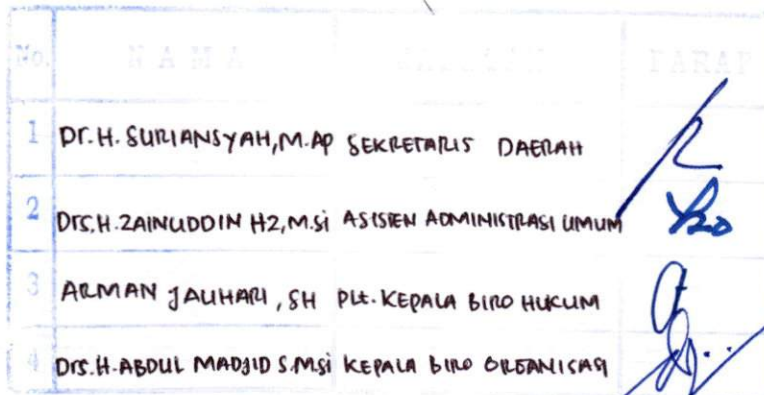 No. N A M A JABATAN PARAF
1 Dr. H. SURIANSYAH, M.AP SEKRETARIS DAERAH
2 Drs. H. ZAINUDDIN HZ, M.Si ASISTEN ADMINISTRASI UMUM
3 ARMAN JAUHARI, SH Plt. KEPALA BIRO HUKUM
4 Drs. H. ABDUL MADJID S. M.Si KEPALA BIRO ORGANISASI